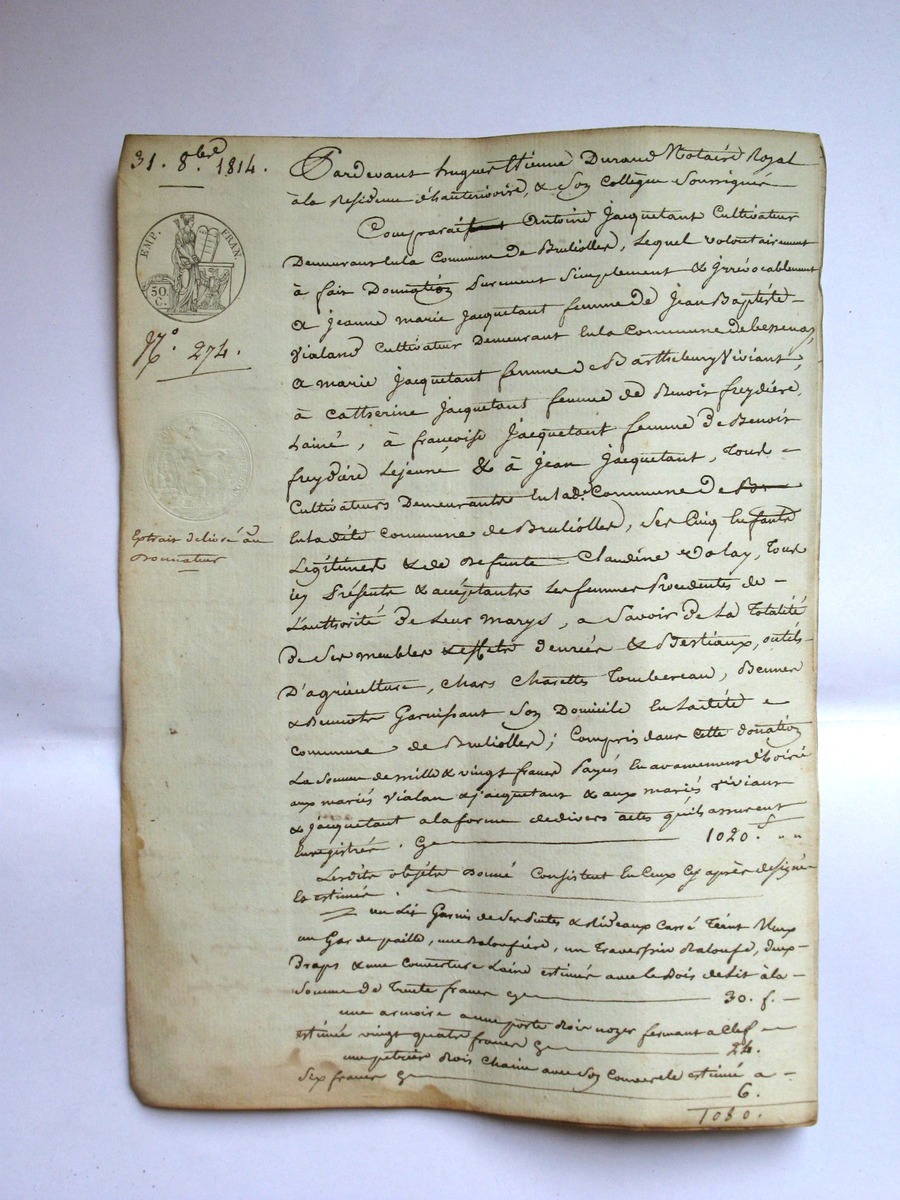 31. 8.bre 1814.
EMP. FRAN.
50 C.
N.º 274.
Extrait délivré au
Donnateur
Pardevant hugues Etienne Durand Notaire Royal
à la Residence d'hauterivoire, & Son Collègue Soussignés
Comparait Antoine Jacquetant Cultivateur
Demeurant en la Commune de Brulioller, Lequel volontairement
à fait Donnation Purement Simplement & Irrévocablement
a Jeanne marie Jacquetant femme de Jean Baptiste
Vialand Cultivateur Demeurant en la Commune de bessenay,
a marie Jacquetant femme de Barthelemy Viviant,
à Catherine Jacquetant femme de Benoit freydiere,
Lainé, à françoise Jacquetant femme de Benoit
freydiere Lejeune & à Jean Jacquetant, Tous
Cultivateurs Demeurants en lad.e Commune De
En la dite Commune de Brulioller, Ses Cinq Enfants
Légitimes & de Defunte Claudine Dalay, Tous
icy Présents & acceptants Les femmes Procedentes de
L'authorité de Leur marys, a Savoir De La Totalité
De Ses meubles & effets denrées & Bestiaux, outils
D'agriculture, Chars Charettes Tombereau, Bennes
& Bennots Garnissant Son Domicile En la dite
Commune de Brulioller; Compris dans Cette donation
La Somme de mille & vingt francs Payés En avancement d'hoirie
aux mariés Vialan & jacquetant & aux mariés viviant
& jacquetant a la forme de divers actes qu'ils assurent
Enregistrés. Cy 1020. f " "
Lesdits objets Donné Consistent En Ceux Cy après designés
Et estimés.
un Lit Garni de Ses Rideaux Carré Teint
un Gardepaille, une Baloufière, un Traversin Baloufe, deux
Draps & une Couverture Laine estimée avec le Bois de Lit à la
Somme De Trente francs cy 30. f.
une armoire a une porte Bois noyer fermant a Clef
estimée vingt quatre francs Cy 24.
une petrière Bois Chaine avec Son Couvercle estimée a
Six francs Cy 6.
1080.